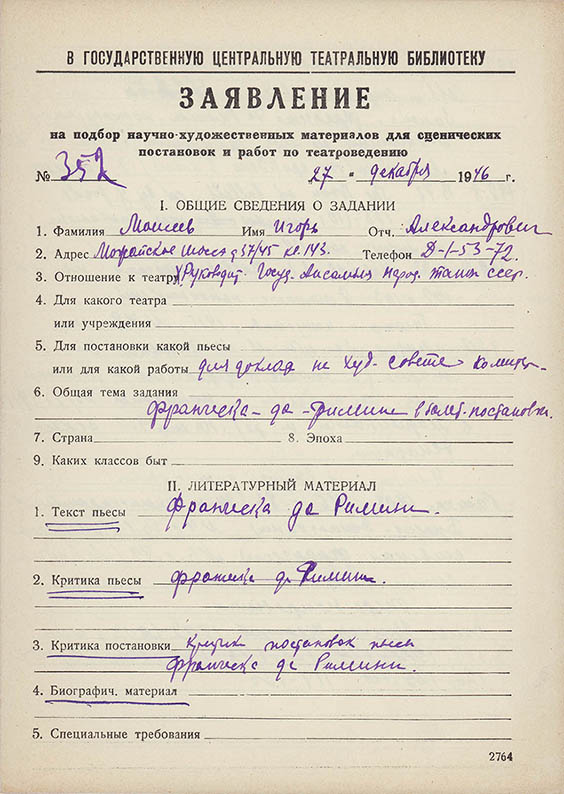 В ГОСУДАРСТВЕННУЮ ЦЕНТРАЛЬНУЮ ТЕАТРАЛЬНУЮ БИБЛИОТЕКУ
ЗАЯВЛЕНИЕ
на подбор научно-художественных материалов для сценических
постановок и работ по театроведению
№ 352 „27" декабря 1946 г.
I. ОБЩИЕ СВЕДЕНИЯ О ЗАДАНИИ
1. Фамилия Моисеев Имя Игорь Отч. Александрович
2. Адрес Можайское шоссе д 37/45 кв. 143. Телефон Д-1-53-72.
3. Отношение к театру Руководит. Госуд. Ансамбля народ. танца СССР.
4. Для какого театра
или учреждения
5. Для постановки какой пьесы
или для какой работы для доклад на худ. совете
6. Общая тема задания
Франческа-да-Римини в балет. постановки.
7. Страна 8. Эпоха
9. Каких классов быт
II. ЛИТЕРАТУРНЫЙ МАТЕРИАЛ
1. Текст пьесы Франческа да Римини.
2. Критика пьесы Франческа да Римини.
3. Критика постановки Критик постановок пьесы
Франческа да Римини.
4. Биографич. материал
5. Специальные требования
2764